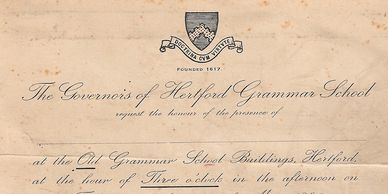 DOCTRINA CVM VIRTUTE
FOUNDED 1617.
The Governors of Hertford Grammar School
request the honour of the presence of
at the Old Grammar School Buildings, Hertford,
at the hour of Three o'clock in the afternoon on